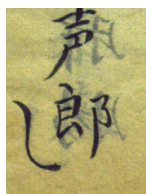 声郎
し